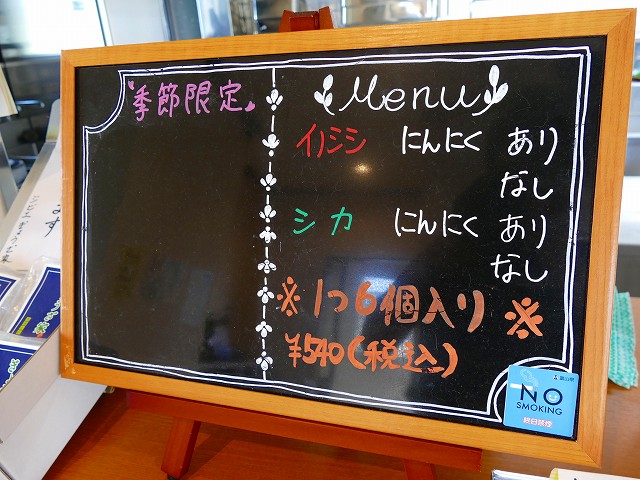 季節限定
Menu
イノシシ にんにく あり
なし
シカ にんにく あり
なし
※1つ6個入り※
¥540(税込)
富山県
NO
SMOKING
終日禁煙